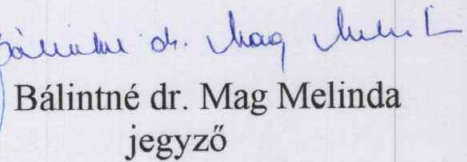 Bálintné dr. Mag Melinda
Bálintné dr. Mag Melinda
jegyző